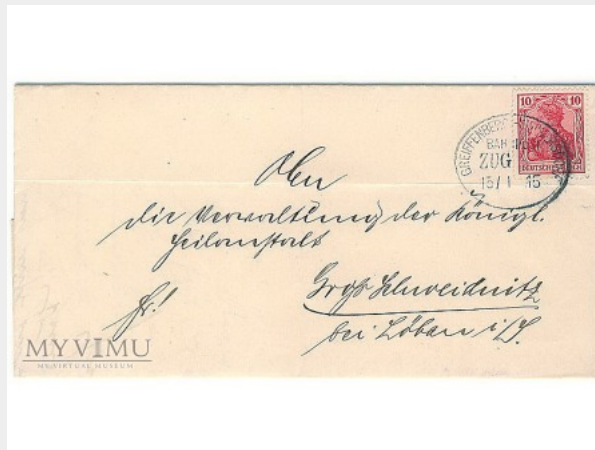 10 10
DEUTSCHES
GREIFFENBERG
BAHNPOST
ZUG
15/1 15
An
die Verwaltung der Königl.
Heilanstalt
Fr!
Groß Schweidnitz
bei Löbau i/S.
MYVIMU
MY VIRTUAL MUSEUM